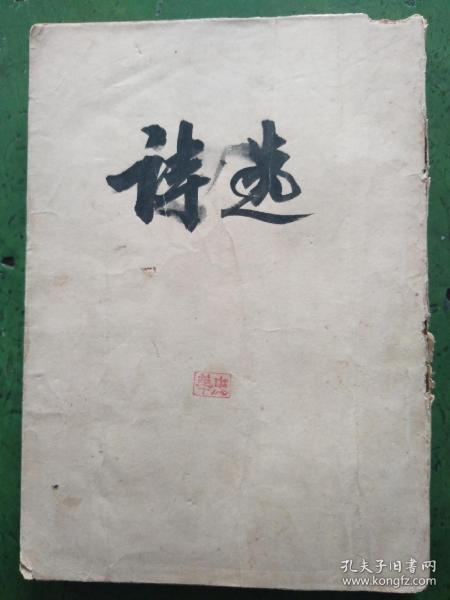 詩选
孔夫子旧书网
www.kongfz.com